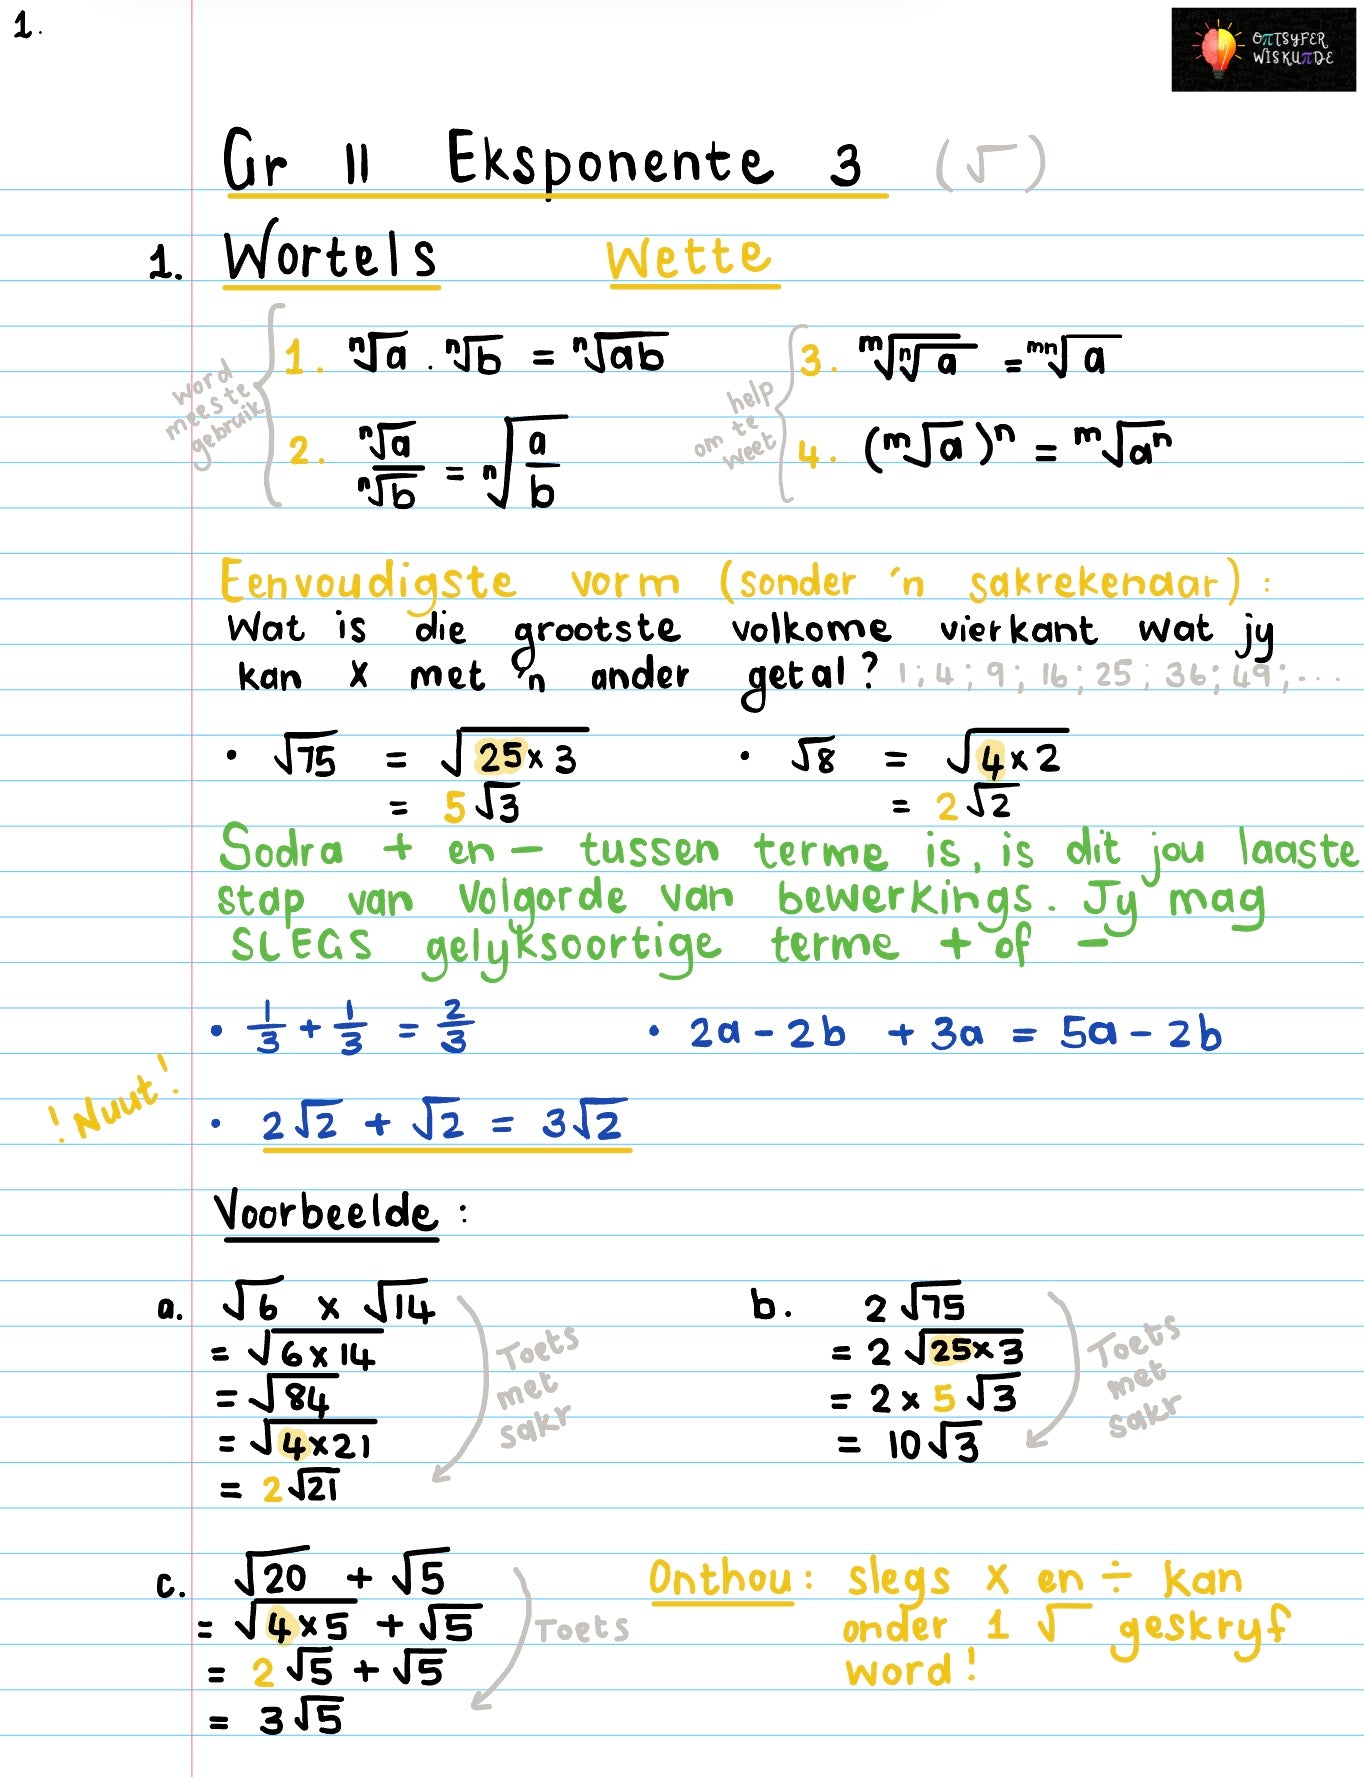 1.
OπTSYFER
WISKUπDE
Gr 11 Eksponente 3 (√)
1. Wortels Wette
word meeste gebruik
1. ⁿ√a . ⁿ√b = ⁿ√ab
2. ⁿ√a / ⁿ√b = ⁿ√(a/b)
help om te weet
3. ᵐ√(ⁿ√a) = ᵐⁿ√a
4. (ᵐ√a)ⁿ = ᵐ√aⁿ
Eenvoudigste vorm (sonder 'n sakrekenaar):
Wat is die grootste volkome vierkant wat jy
kan x met 'n ander getal? 1; 4; 9; 16; 25; 36; 49;...
• √75 = √(25 x 3) • √8 = √(4 x 2)
= 5√3 = 2√2
Sodra + en - tussen terme is, is dit jou laaste
stap van volgorde van bewerkings. Jy mag
SLEGS gelyksoortige terme + of -
• 1/3 + 1/3 = 2/3 • 2a - 2b + 3a = 5a - 2b
! Nuut!
• 2√2 + √2 = 3√2
Voorbeelde:
a. √6 x √14
= √(6 x 14)
= √84
= √(4 x 21)
= 2√21
Toets
met
sakr
b. 2√75
= 2√(25 x 3)
= 2 x 5√3
= 10√3
Toets
met
sakr
c. √20 + √5
= √(4 x 5) + √5
= 2√5 + √5
= 3√5
Toets
Onthou: slegs x en ÷ kan
onder 1 √ geskryf
word!